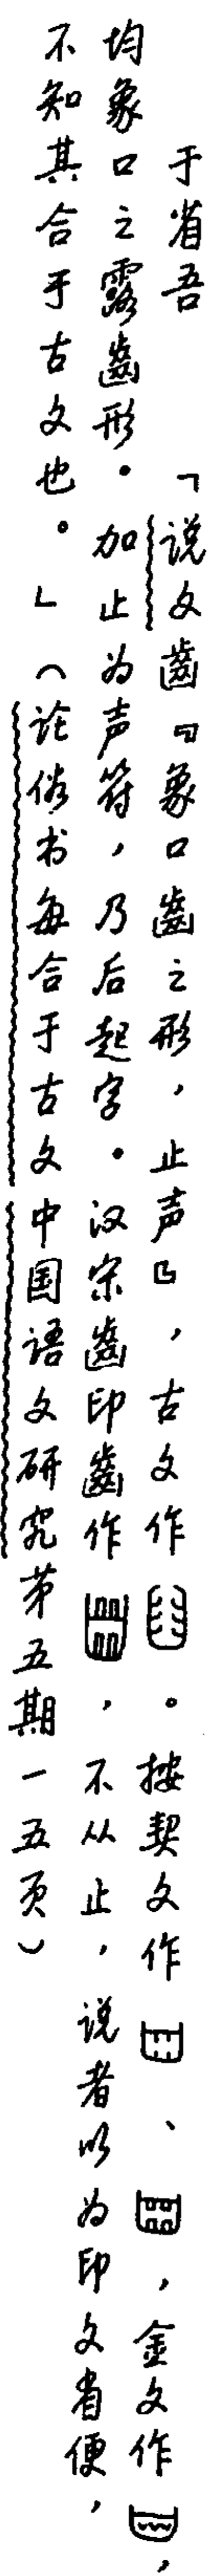 于省吾 「说文齒『象口齒之形，止声』，古文作。按契文作、，金文作，
均象口之露齒形。加止为声符，乃后起字。汉宋齒印齒作，不从止，说者以为印文省便，
不知其合于古文也。」（论俗书每合于古文 中国语文研究第五期一五页）